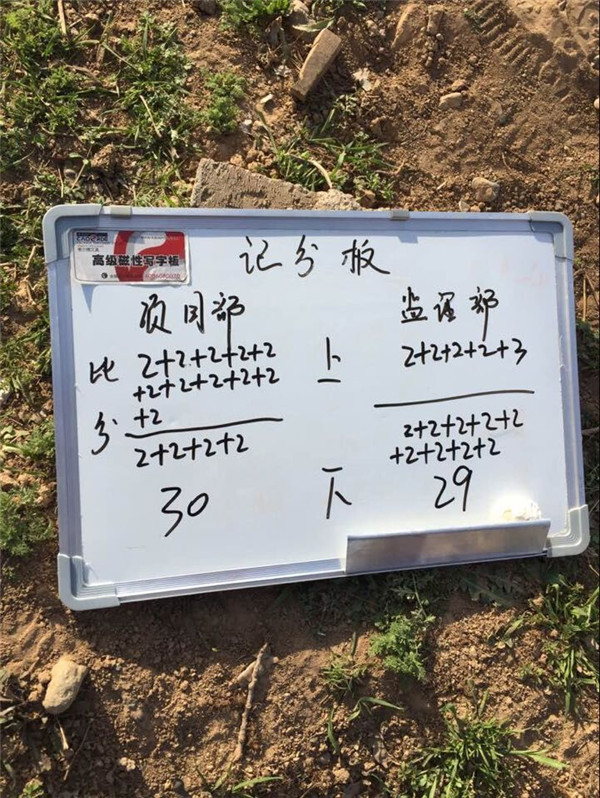 高级磁性写字板
记分板
项目部 监理部
比 2+2+2+2+2 上 2+2+2+2+3
+2+2+2+2+2
分 +2
2+2+2+2 2+2+2+2+2
+2+2+2+2
30 下 29